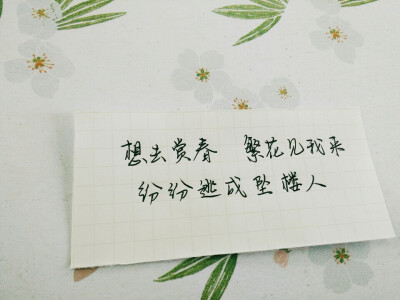 想去赏春 繁花见我来
纷纷逃成坠楼人